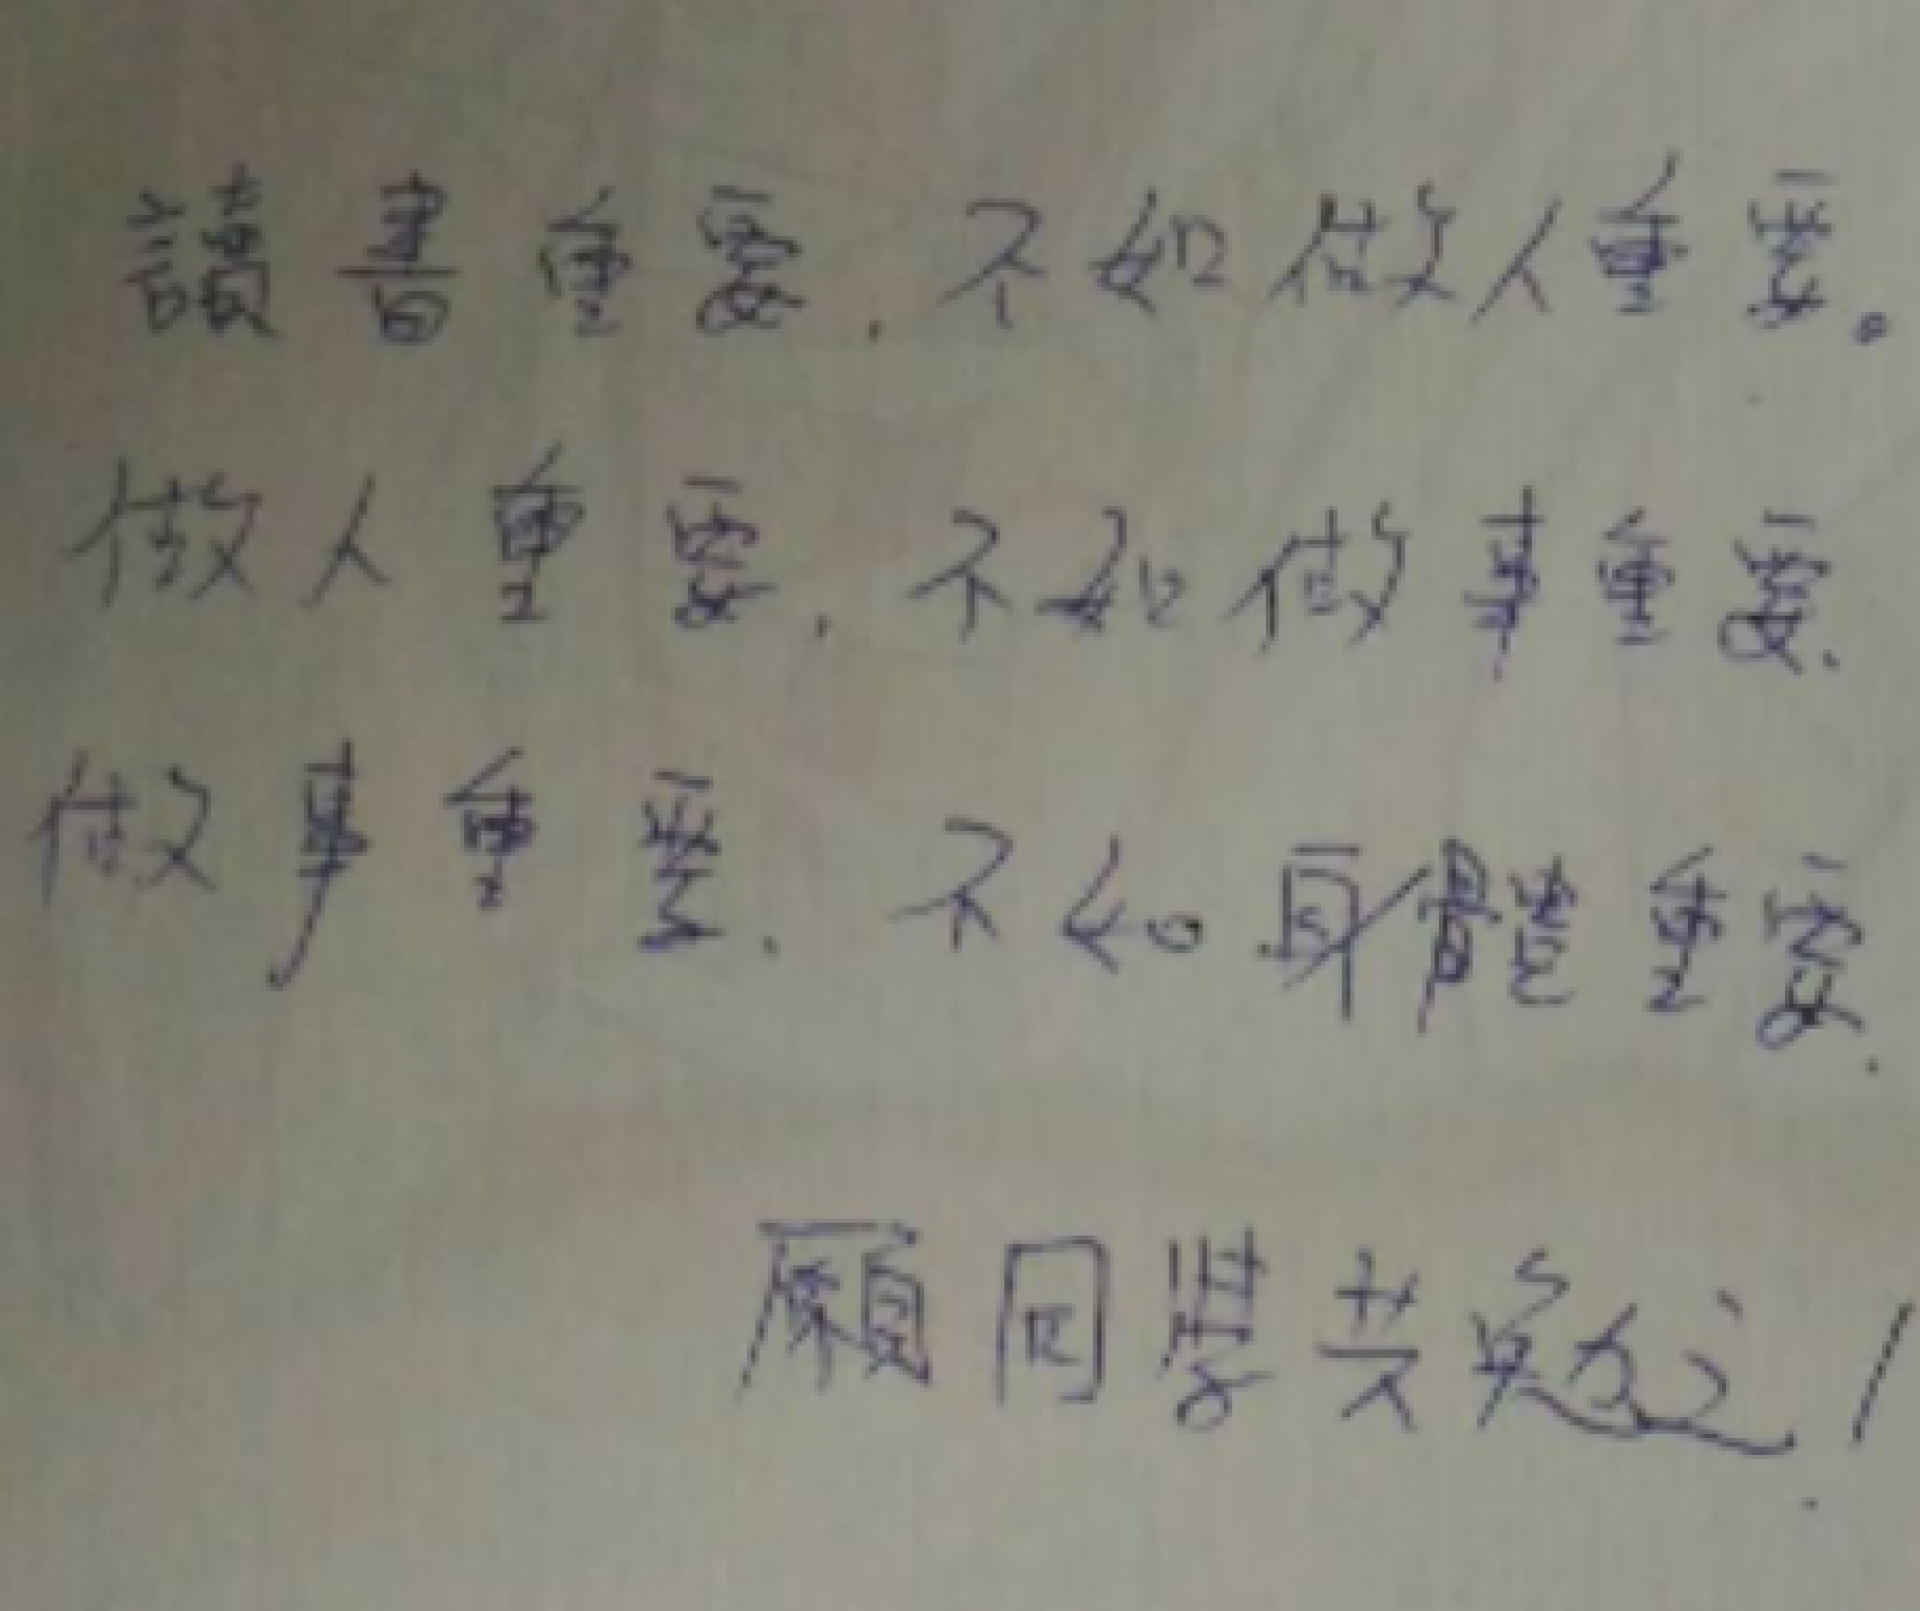 讀書重要，不如做人重要。
做人重要，不如做事重要．
做事重要．不如身體重要．
願同學共勉之！